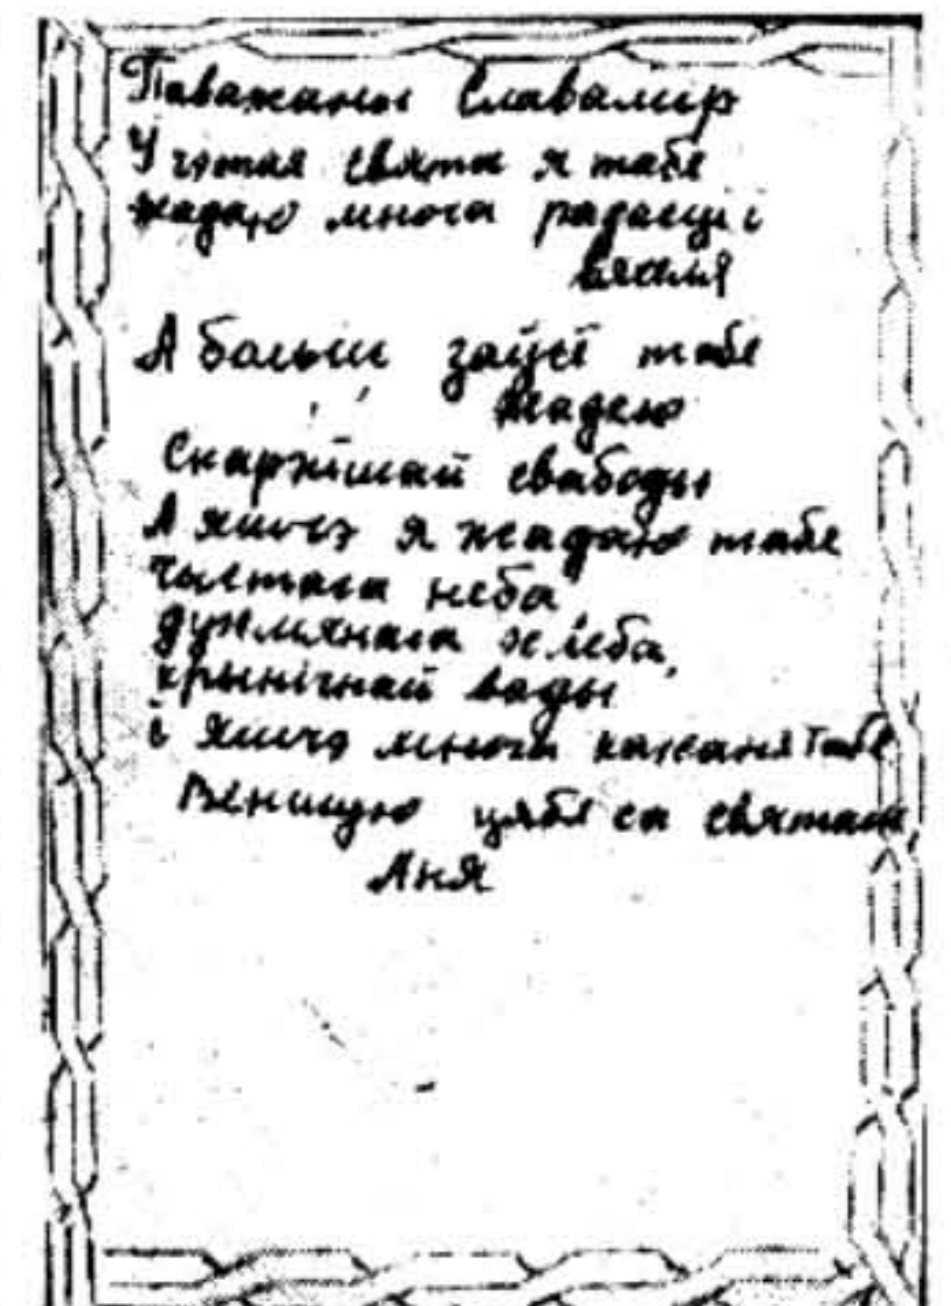 Паважаны Славамір
У гэтая святы я табе
жадаю многа радасці і
вяселля
А больш за ўсё табе
жадаю
Скарэйшай свабоды
А яшчэ я жадаю табе
чыстага неба
духмянага хлеба,
крынічнай вады
і яшчэ многа каханя табе
Веншую цябе са святам
Аня